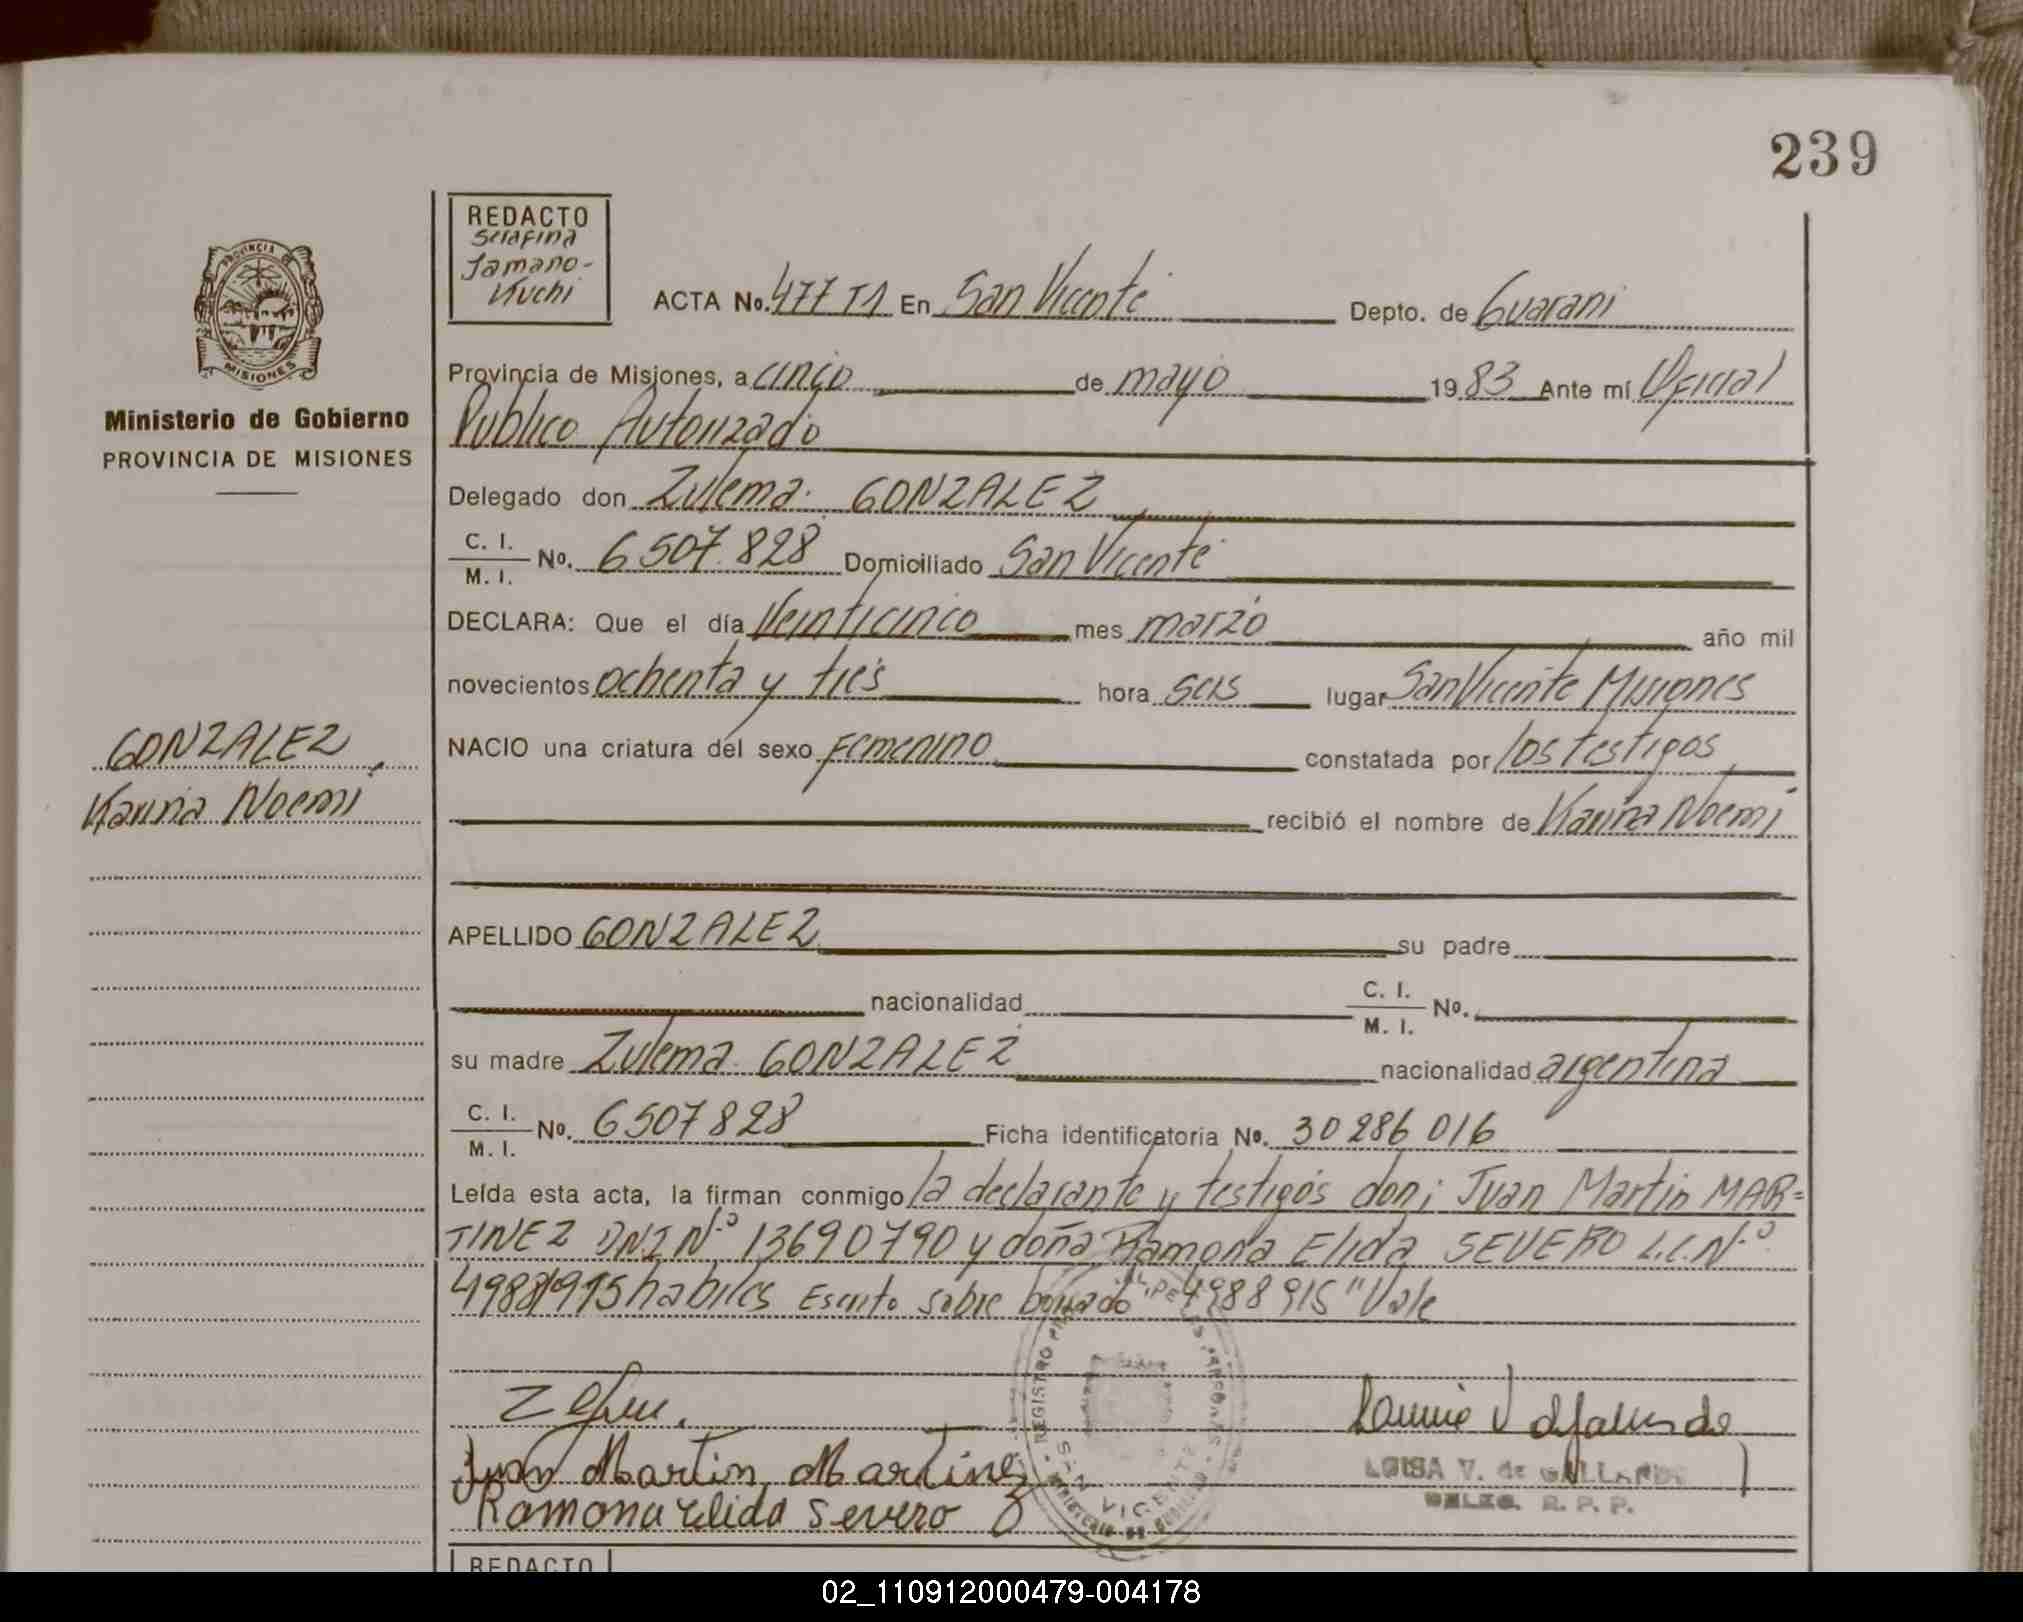 239
REDACTO
Serafina
Jamano-
Kuchi
PROVINCIA
MISIONES
Ministerio de Gobierno
PROVINCIA DE MISIONES
ACTA No. 477 T1 En San Vicente Depto. de Guarani
Provincia de Misiones, a cinco de mayo 1983 Ante mí Oficial
Publico Autorizado
Delegado don Zulema GONZALEZ
C. I. / M. I. No. 6507.828 Domiciliado San Vicente
DECLARA: Que el día Veinticinco mes marzo año mil
novecientos ochenta y tres hora seis lugar San Vicente Misiones
NACIO una criatura del sexo femenino constatada por los testigos
recibió el nombre de Karina Noemi
GONZALEZ
Karina Noemi
APELLIDO GONZALEZ su padre
nacionalidad C. I. / M. I. No.
su madre Zulema GONZALEZ nacionalidad argentina
C. I. / M. I. No. 6507828 Ficha identificatoria No. 30286016
Leída esta acta, la firman conmigo la declarante y testigos don: Juan Martin MAR=
TINEZ DNI Nº 13690790 y doña Ramona Elida SEVERO L.C.Nº
4988915 habiles Escrito sobre borrado "4988915" Vale
Juan Martin Martinez
Ramona Elida Severo
SAN VICENTE
LUISA V. de GALLARDO
DELEG. R. P. P.
REDACTO
02_110912000479-004178